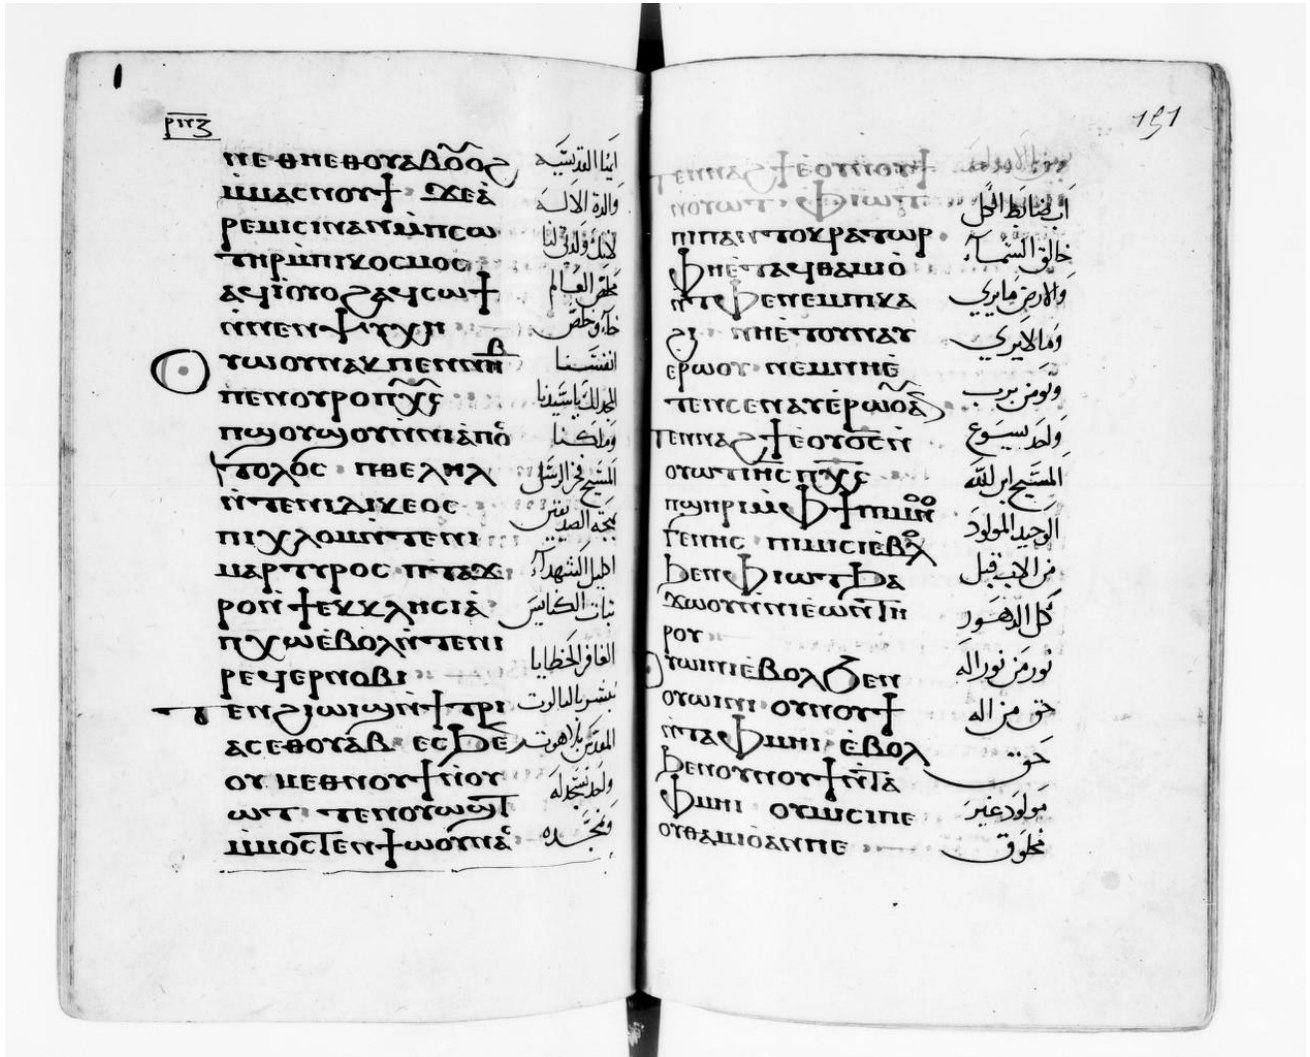 ⲣⲛ̅ⲍ
ⲛⲉⲑⲛⲉⲑⲟⲩⲁⲃⲟ̂ⲟ̂ϩ
ⲙ̀ⲙⲁⲥⲛⲟⲩϯ · ϫⲉⲁ̀
ⲣⲉⲙⲓⲥⲓⲛⲁⲛⲙ̀ⲡⲥⲱ
ⲧⲏⲣⲙ̀ⲡⲓⲕⲟⲥⲙⲟⲥ
ⲁϥⲓ̀ⲟⲩⲟϩⲁϥⲥⲱϯ
ⲛ̀ⲛⲉⲛⲯⲩⲭⲏ
ⲩⲱⲟⲩⲛⲁⲕⲡⲉⲛⲛⲏⲃ
ⲡⲉⲛⲟⲩⲣⲟⲡⲭ̅ⲥ̅
ⲡϣⲟⲩϣⲟⲩⲛ̀ⲛⲓⲁ̀ⲡⲟ̀ⲥ
ⲧⲟⲗⲟⲥ · ⲡⲑⲉⲗⲏⲗ
ⲛ̀ⲧⲉⲛⲓⲇⲓⲕⲉⲟⲥ
ⲡⲓⲭⲗⲟⲙⲛ̀ⲧⲉⲛⲓ
ⲙⲁⲣⲧⲩⲣⲟⲥ · ⲡⲧⲁϫ
ⲣⲟⲛ̀ϯⲉⲕⲕⲗⲏⲥⲓⲁ̀
ⲡⲭⲱⲉ̀ⲃⲟⲗⲛ̀ⲧⲉⲛⲓ
ⲣⲉϥⲉⲣⲛⲟⲃⲓ
ⲧⲉⲛϩⲓⲱⲓϣⲛ̀ϯⲧⲣⲓ
ⲁⲥⲉⲑⲟⲩⲁⲃ · ⲉⲥϧⲉⲛ
ⲟⲩⲙⲉⲑⲛⲟⲩϯⲛ̀ⲟⲩ
ⲱⲧ · ⲧⲉⲛⲟⲩⲱϣⲧ
ⲙ̀ⲙⲟⲥⲧⲉⲛϯⲱ̀ⲟⲩⲛⲁⲥ
ايتها القديسة
والدة الاله
لانك ولدتي لنا
مخلص العالم
جاء وخلص
انفسنا
المجد لك يا سيدنا
وملكنا
المسيح فخر الرسل
بهجة الصديقين
اكليل الشهداء
ثبات الكنايس
الغافر الخطايا
نبشر بالثالوت
المقدس بلاهوت
واحد نسجد له
ونمجده
191
ⲧⲉⲛⲛⲁϩϯⲉⲟⲩⲛⲟⲩϯ
ⲛⲟⲩⲱⲧ · ⲫⲓⲱⲧ
ⲡⲓⲡⲁⲛⲧⲟⲕⲣⲁⲧⲱⲣ ·
ⲫⲏⲉ̀ⲧⲁϥⲑⲁⲙⲓⲟ
ⲛ̀ⲧⲫⲉⲛⲉⲙⲡⲕⲁ
ϩⲓ · ⲛⲏⲉ̀ⲧⲟⲩⲛⲁⲩ
ⲉⲣⲱⲟⲩ · ⲛⲉⲙⲛⲏⲉ̀
ⲧⲉⲛⲥⲉⲛⲁⲩⲉ̀ⲣⲱⲟⲩⲁⲛ
ⲧⲉⲛⲛⲁϩϯⲉⲟⲩϭⲥ̅ⲛ̀
ⲟⲩⲱⲧⲓⲏ̅ⲥ̅ⲡⲭ̅ⲥ̅
ⲡϣⲏⲣⲓⲙ̀ⲫϯⲡⲓⲙⲟⲛⲟ
ⲅⲉⲛⲏⲥ · ⲡⲓⲙⲓⲥⲓⲉ̀ⲃⲟⲗ
ϧⲉⲛⲫⲓⲱⲧϧⲁ
ϫⲱⲟⲩⲛ̀ⲛⲓⲉ̀ⲱⲛⲧⲏ
ⲣⲟⲩ
ⲟⲩⲱⲓⲛⲓⲉ̀ⲃⲟⲗϧⲉⲛ
ⲟⲩⲱⲓⲛⲓ · ⲟⲩⲛⲟⲩϯ
ⲛ̀ⲧⲁⲫⲙⲏⲓ · ⲉ̀ⲃⲟⲗ
ϧⲉⲛⲟⲩⲛⲟⲩϯⲛ̀ⲧⲁ
ⲫⲙⲏⲓ · ⲟⲩⲙⲓⲥⲓⲡⲉ
ⲟⲩⲑⲁⲙⲓⲟⲁⲛⲡⲉ
اب ضابط الكل
خالق السماء
والارض ما يري
وما لا يري
ونومن برب
واحد يسوع
المسيح ابن الله
الوحيد المولود
من الاب قبل
كل الدهور
نور من نور اله
حق من اله
حق
مولود غير
مخلوق